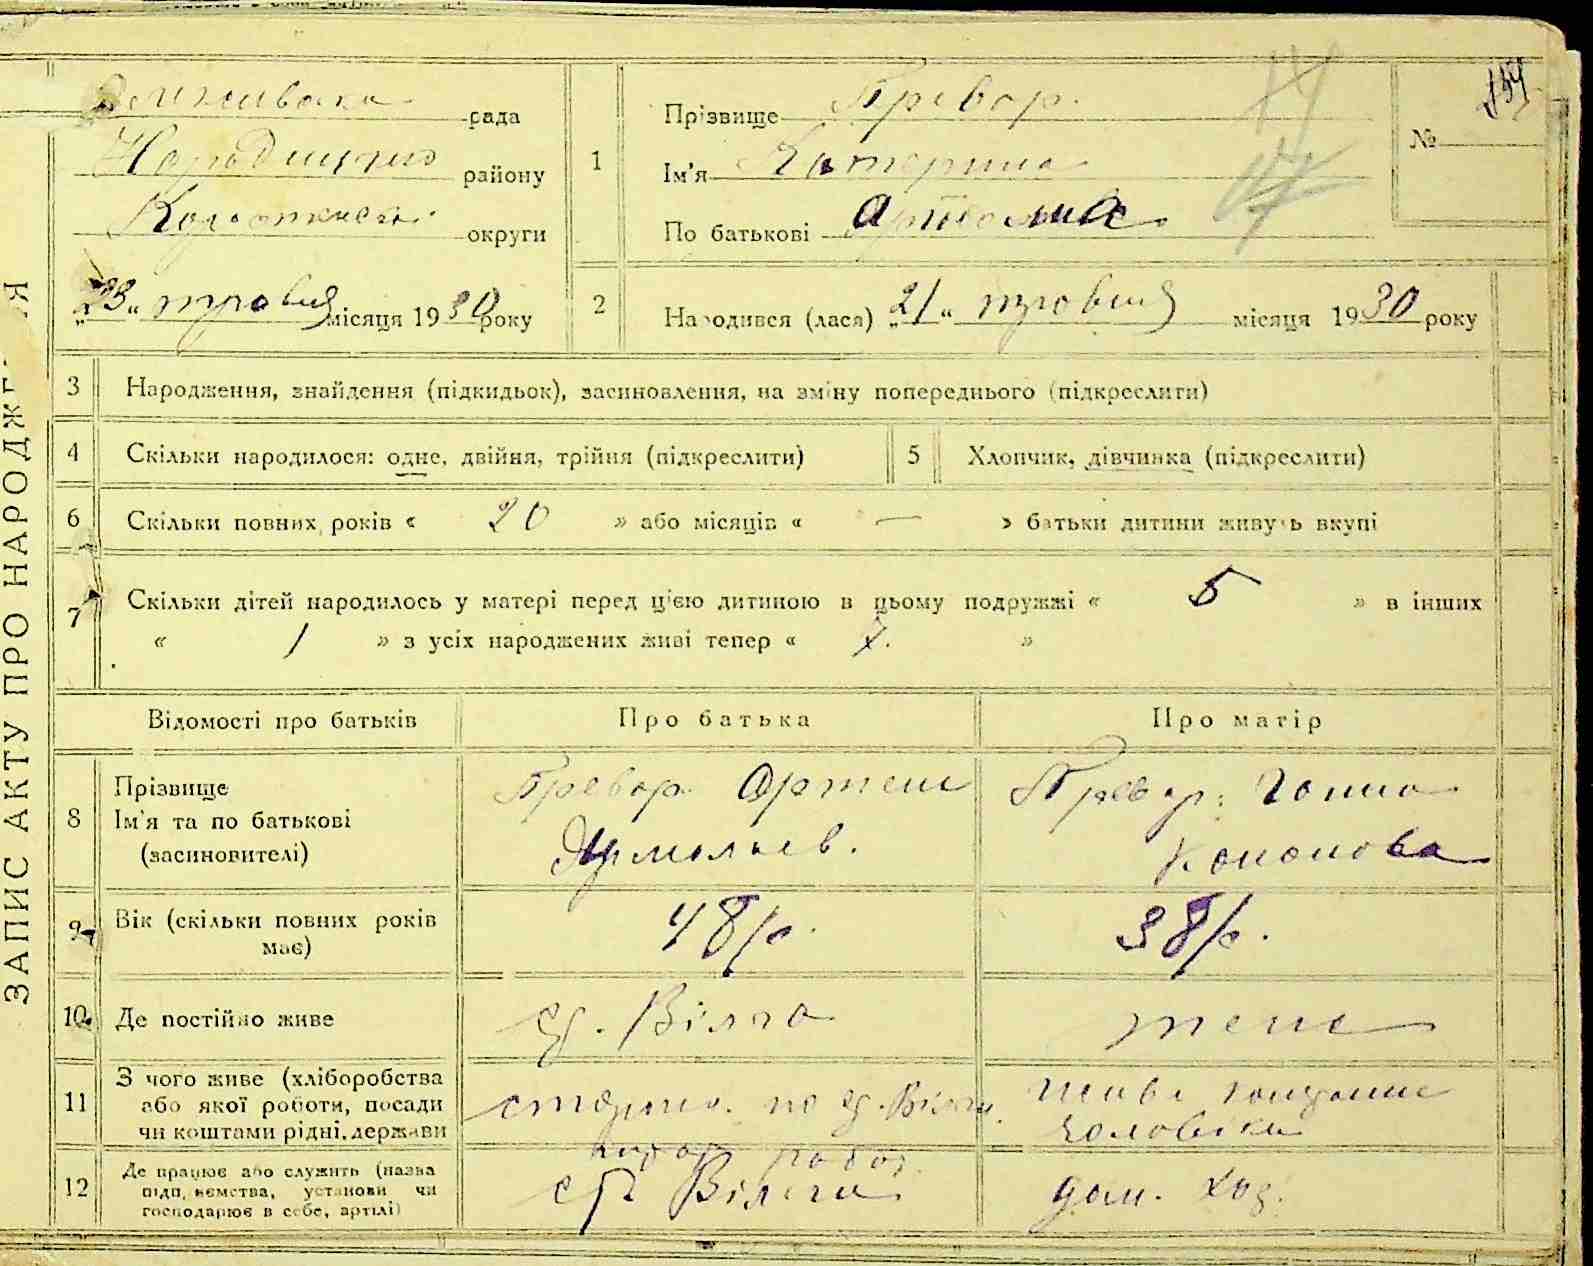 ЗАПИС АКТУ ПРО НАРОДЖЕ Я
рада
Народицького району
Коростенської округи
„23“ травня місяця 1930 року
1
Прізвище Превор.
Ім'я Катерина
По батькові Артемів
№ 154
2
Народився (лася) „21“ травня місяця 1930 року
3 Народження, знайдення (підкидьок), засиновлення, на зміну попереднього (підкреслити)
4 Скільки народилося: одне, двійня, трійня (підкреслити)
5 Хлопчик, дівчинка (підкреслити)
6 Скільки повних років « 20 » або місяців « — » батьки дитини живуть вкупі
7 Скільки дітей народилось у матері перед цією дитиною в цьому подружжі « 5 » в інших
« 1 » з усіх народжених живі тепер « 7. »
Відомості про батьків Про батька Про матір
8 Прізвище
Ім'я та по батькові
(засиновителі)
Превор. Артем
Ярмольєв.
Превор. Ганна
Кононова
9 Вік (скільки повних років має) 48/р. 38/р.
10 Де постійно живе с. Вілча теж
11 З чого живе (хліборобства
або якої роботи, посади
чи коштами рідні, держави
по с. Вілчи.
живе коштами
чоловіка
12 Де працює або служить (назва
підп, ємства, установи чи
господарює в себе, артілі)
робот.
ст Вілча
дом. хоз.